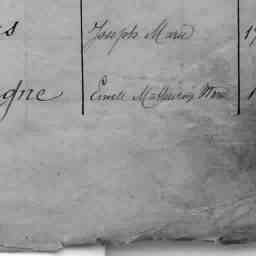 s Joseph Marie 17
gne Emile Mathurin Marie 1